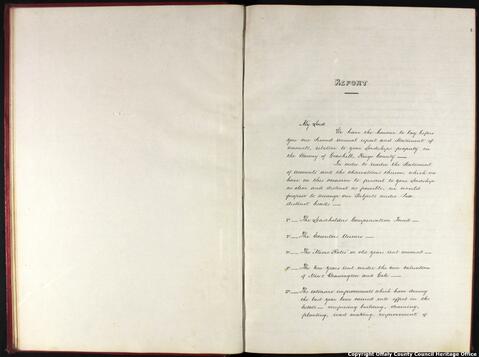 REPORT
My Lord
We have the honour to lay before
you our second annual report and statement of
accounts, relative to your Lordships property in
the Barony of Geashill, Kings County —
In order to render the statement
of accounts and the observations thereon which we
have on this occasion to present to your Lordship
as clear and distinct as possible, we would
propose to arrange our Subjects under five
distinct heads —
The Leaseholders Compensation Fund —
The Executors Arrears —
The "Move Rates" or old years rent account —
The New years rent under the new valuation
of Mess.rs Charington and Cole —
The extensive improvements which have during
the last year been carried into effect on the
Estate — comprising building, draining,
planting, road making, improvement of
Copyright Offaly County Council Heritage Office